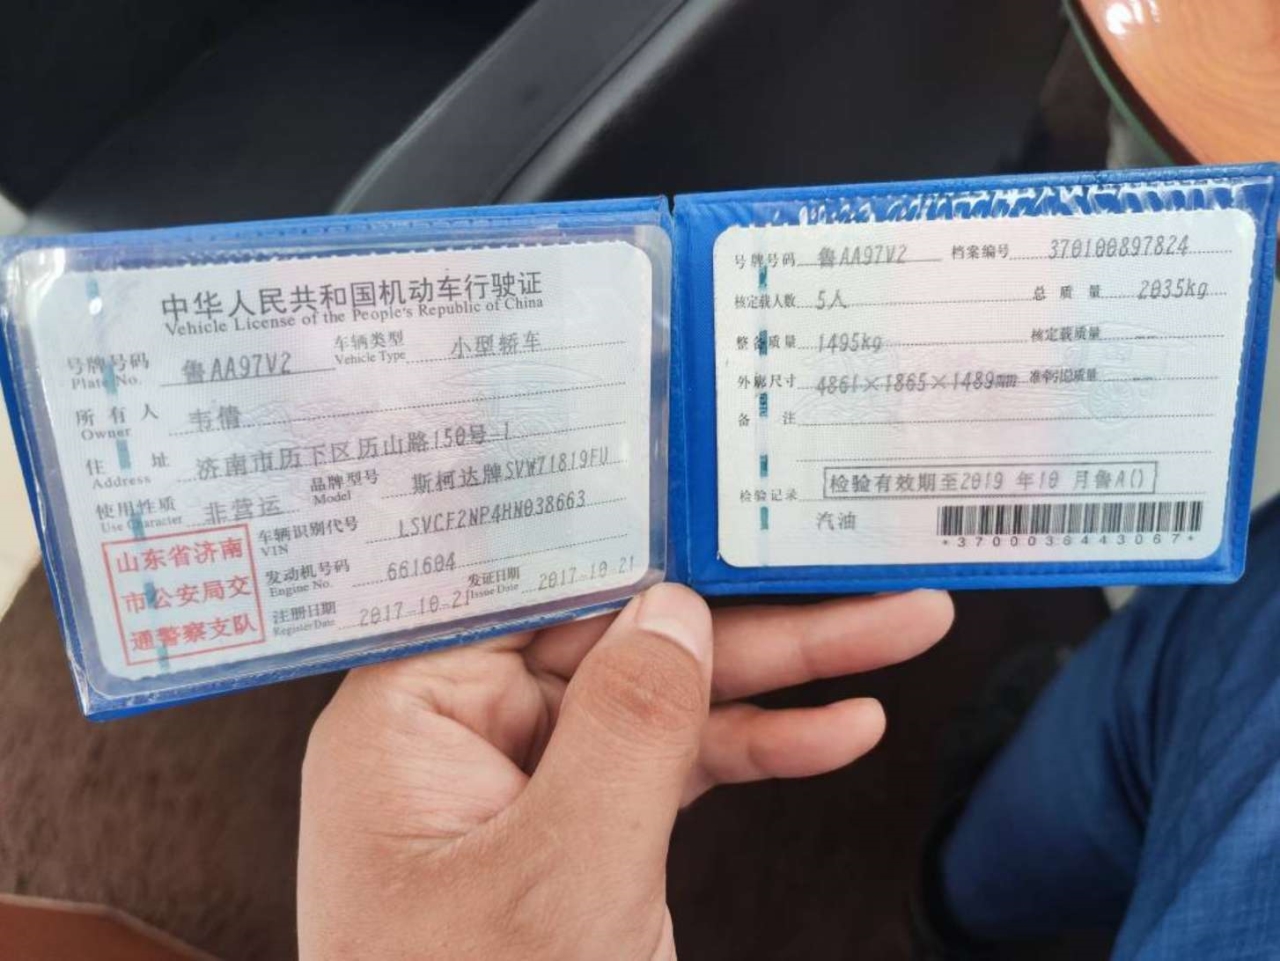 中华人民共和国机动车行驶证
Vehicle License of the People's Republic of China
号牌号码 鲁AA97V2 车辆类型 小型轿车
Plate No. Vehicle Type
所有人 韦倩
Owner
住址 济南市历下区历山路150号-1
Address
使用性质 非营运 品牌型号 斯柯达牌SVW71819FU
Use Character Model
车辆识别代号 LSVCF2NP4HN038663
VIN
发动机号码 661604
Engine No.
注册日期 2017-10-21 发证日期 2017-10-21
Register Date Issue Date
山东省济南
市公安局交
通警察支队
号牌号码 鲁AA97V2 档案编号 370100897824
核定载人数 5人 总质量 2035kg
整备质量 1495kg 核定载质量 --
外廓尺寸 4861×1865×1489mm 准牵引总质量 --
备注
检验记录 检验有效期至2019年10月鲁A()
汽油
*3700036443067*